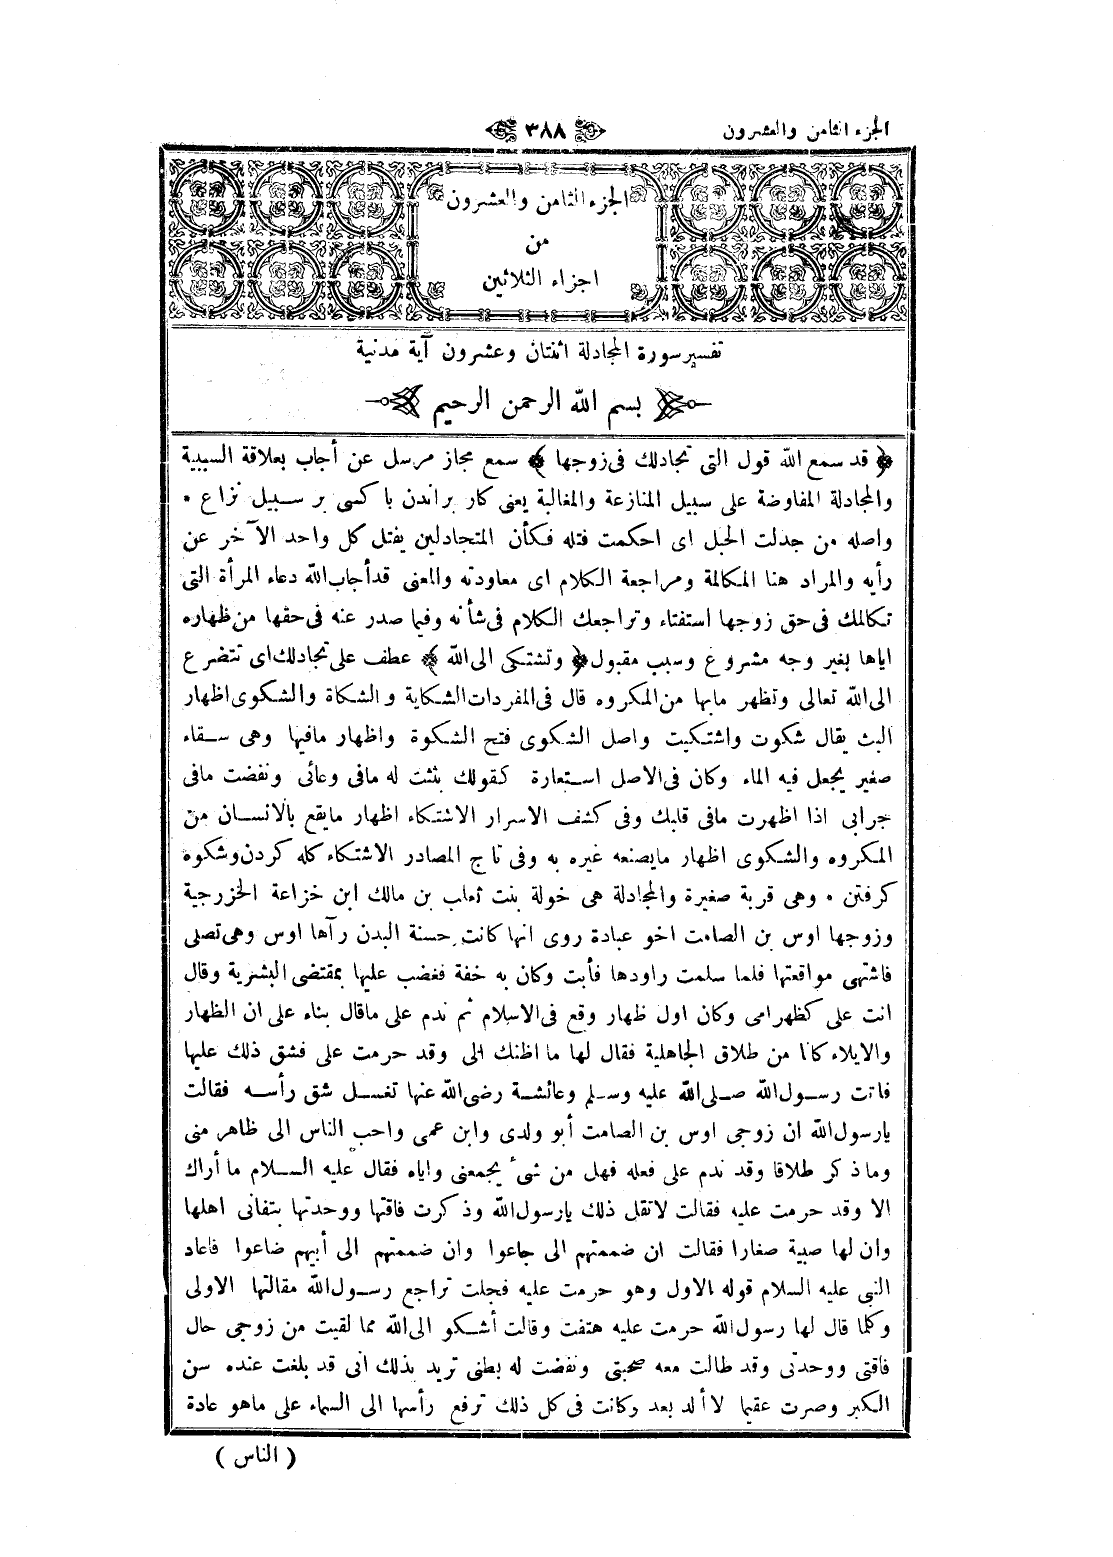 الجزء الثامن والعشرون
٣٨٨
الجزء الثامن والعشرون
من
اجزاء الثلاثين
تفسير سورة المجادلة اثنتان وعشرون آية مدنية
بسم الله الرحمن الرحيم
﴿ قد سمع الله قول التى تجادلك فى زوجها ﴾ سمع مجاز مرسل عن أجاب بعلاقة السببية
والمجادلة المفاوضة على سبيل المنازعة والمغالبة يعنى كار براندن با كسى بر سبيل نزاع •
واصله من جدلت الحبل اى احكمت فتله فكأن المتجادلين يفتل كل واحد الآخر عن
رأيه والمراد هنا المكالمة ومراجعة الكلام اى معاودته والمعنى قد أجاب الله دعاء المرأة التى
تكالمك فى حق زوجها استفتاء وتراجعك الكلام فى شأنه وفيما صدر عنه فى حقها من ظهاره
اياها بغير وجه مشروع وسبب مقبول ﴿ وتشتكى الى الله ﴾ عطف على تجادلك اى تتضرع
الى الله تعالى وتظهر مابها من المكروه قال فى المفردات الشكاية والشكاة والشكوى اظهار
البث يقال شكوت واشتكيت واصل الشكوى فتح الشكوة واظهار مافيها وهى سقاء
صغير يجعل فيه الماء وكان فى الاصل استعارة كقولك بثثت له مافى وعائى ونفضت مافى
جرابى اذا اظهرت مافى قلبك وفى كشف الاسرار الاشتكاء اظهار مايقع بالانسان من
المكروه والشكوى اظهار مايصنعه غيره به وفى تاج المصادر الاشتكاء كله كردن وشكوه
كرفتن • وهى قربة صغيرة والمجادلة هى خولة بنت ثعلب بن مالك ابن خزاعة الخزرجية
وزوجها اوس بن الصامت اخو عبادة روى انها كانت حسنة البدن رآها اوس وهى تصلى
فاشتهى مواقعتها فلما سلمت راودها فأبت وكان به خفة فغضب عليها بمقتضى البشرية وقال
انت على كظهر امى وكان اول ظهار وقع فى الاسلام ثم ندم على ماقال بناء على ان الظهار
والايلاء كانا من طلاق الجاهلية فقال لها ما اظنك الى وقد حرمت على فشق ذلك عليها
فاتت رسول الله صلى الله عليه وسلم وعائشة رضى الله عنها تغسل شق رأسه فقالت
يارسول الله ان زوجى اوس بن الصامت أبو ولدى وابن عمى واحب الناس الى ظاهر منى
وماذكر طلاقا وقد ندم على فعله فهل من شئ يجمعنى واياه فقال عليه السلام ما أراك
الا وقد حرمت عليه فقالت لاتقل ذلك يارسول الله وذكرت فاقتها ووحدتها بتفانى اهلها
وان لها صبية صغارا فقالت ان ضممتهم الى جاعوا وان ضممتهم الى أبيهم ضاعوا فاعاد
النبى عليه السلام قوله الاول وهو حرمت عليه فجلت تراجع رسول الله مقالتها الاولى
وكلما قال لها رسول الله حرمت عليه هتفت وقالت أشكو الى الله مما لقيت من زوجى حال
فاقتى ووحدتى وقد طالت معه صحبتى ونفضت له بطنى تريد بذلك انى قد بلغت عنده سن
الكبر وصرت عقيما لاألد بعد وكانت فى كل ذلك ترفع رأسها الى السماء على ماهو عادة
( الناس )